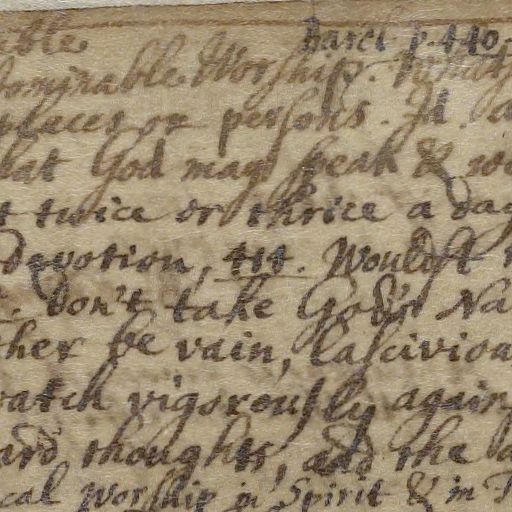 Barcl. p. 440.
Admirable Worship.
places or persons. Id.
that God may speak &
twice or thrice a day
devotion, 414. Wouldst
Don't take God's Na
ther be vain, lasciviou
watch vigorously again
ard thoughts, and the
cal Worship in Spirit & in